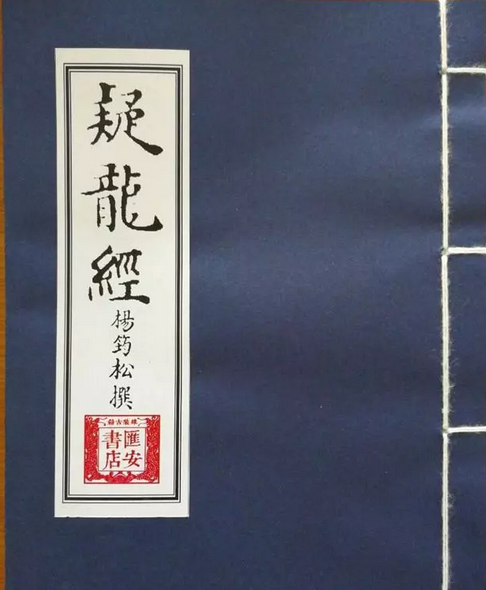 疑龍經
楊筠松撰
匯安
書店